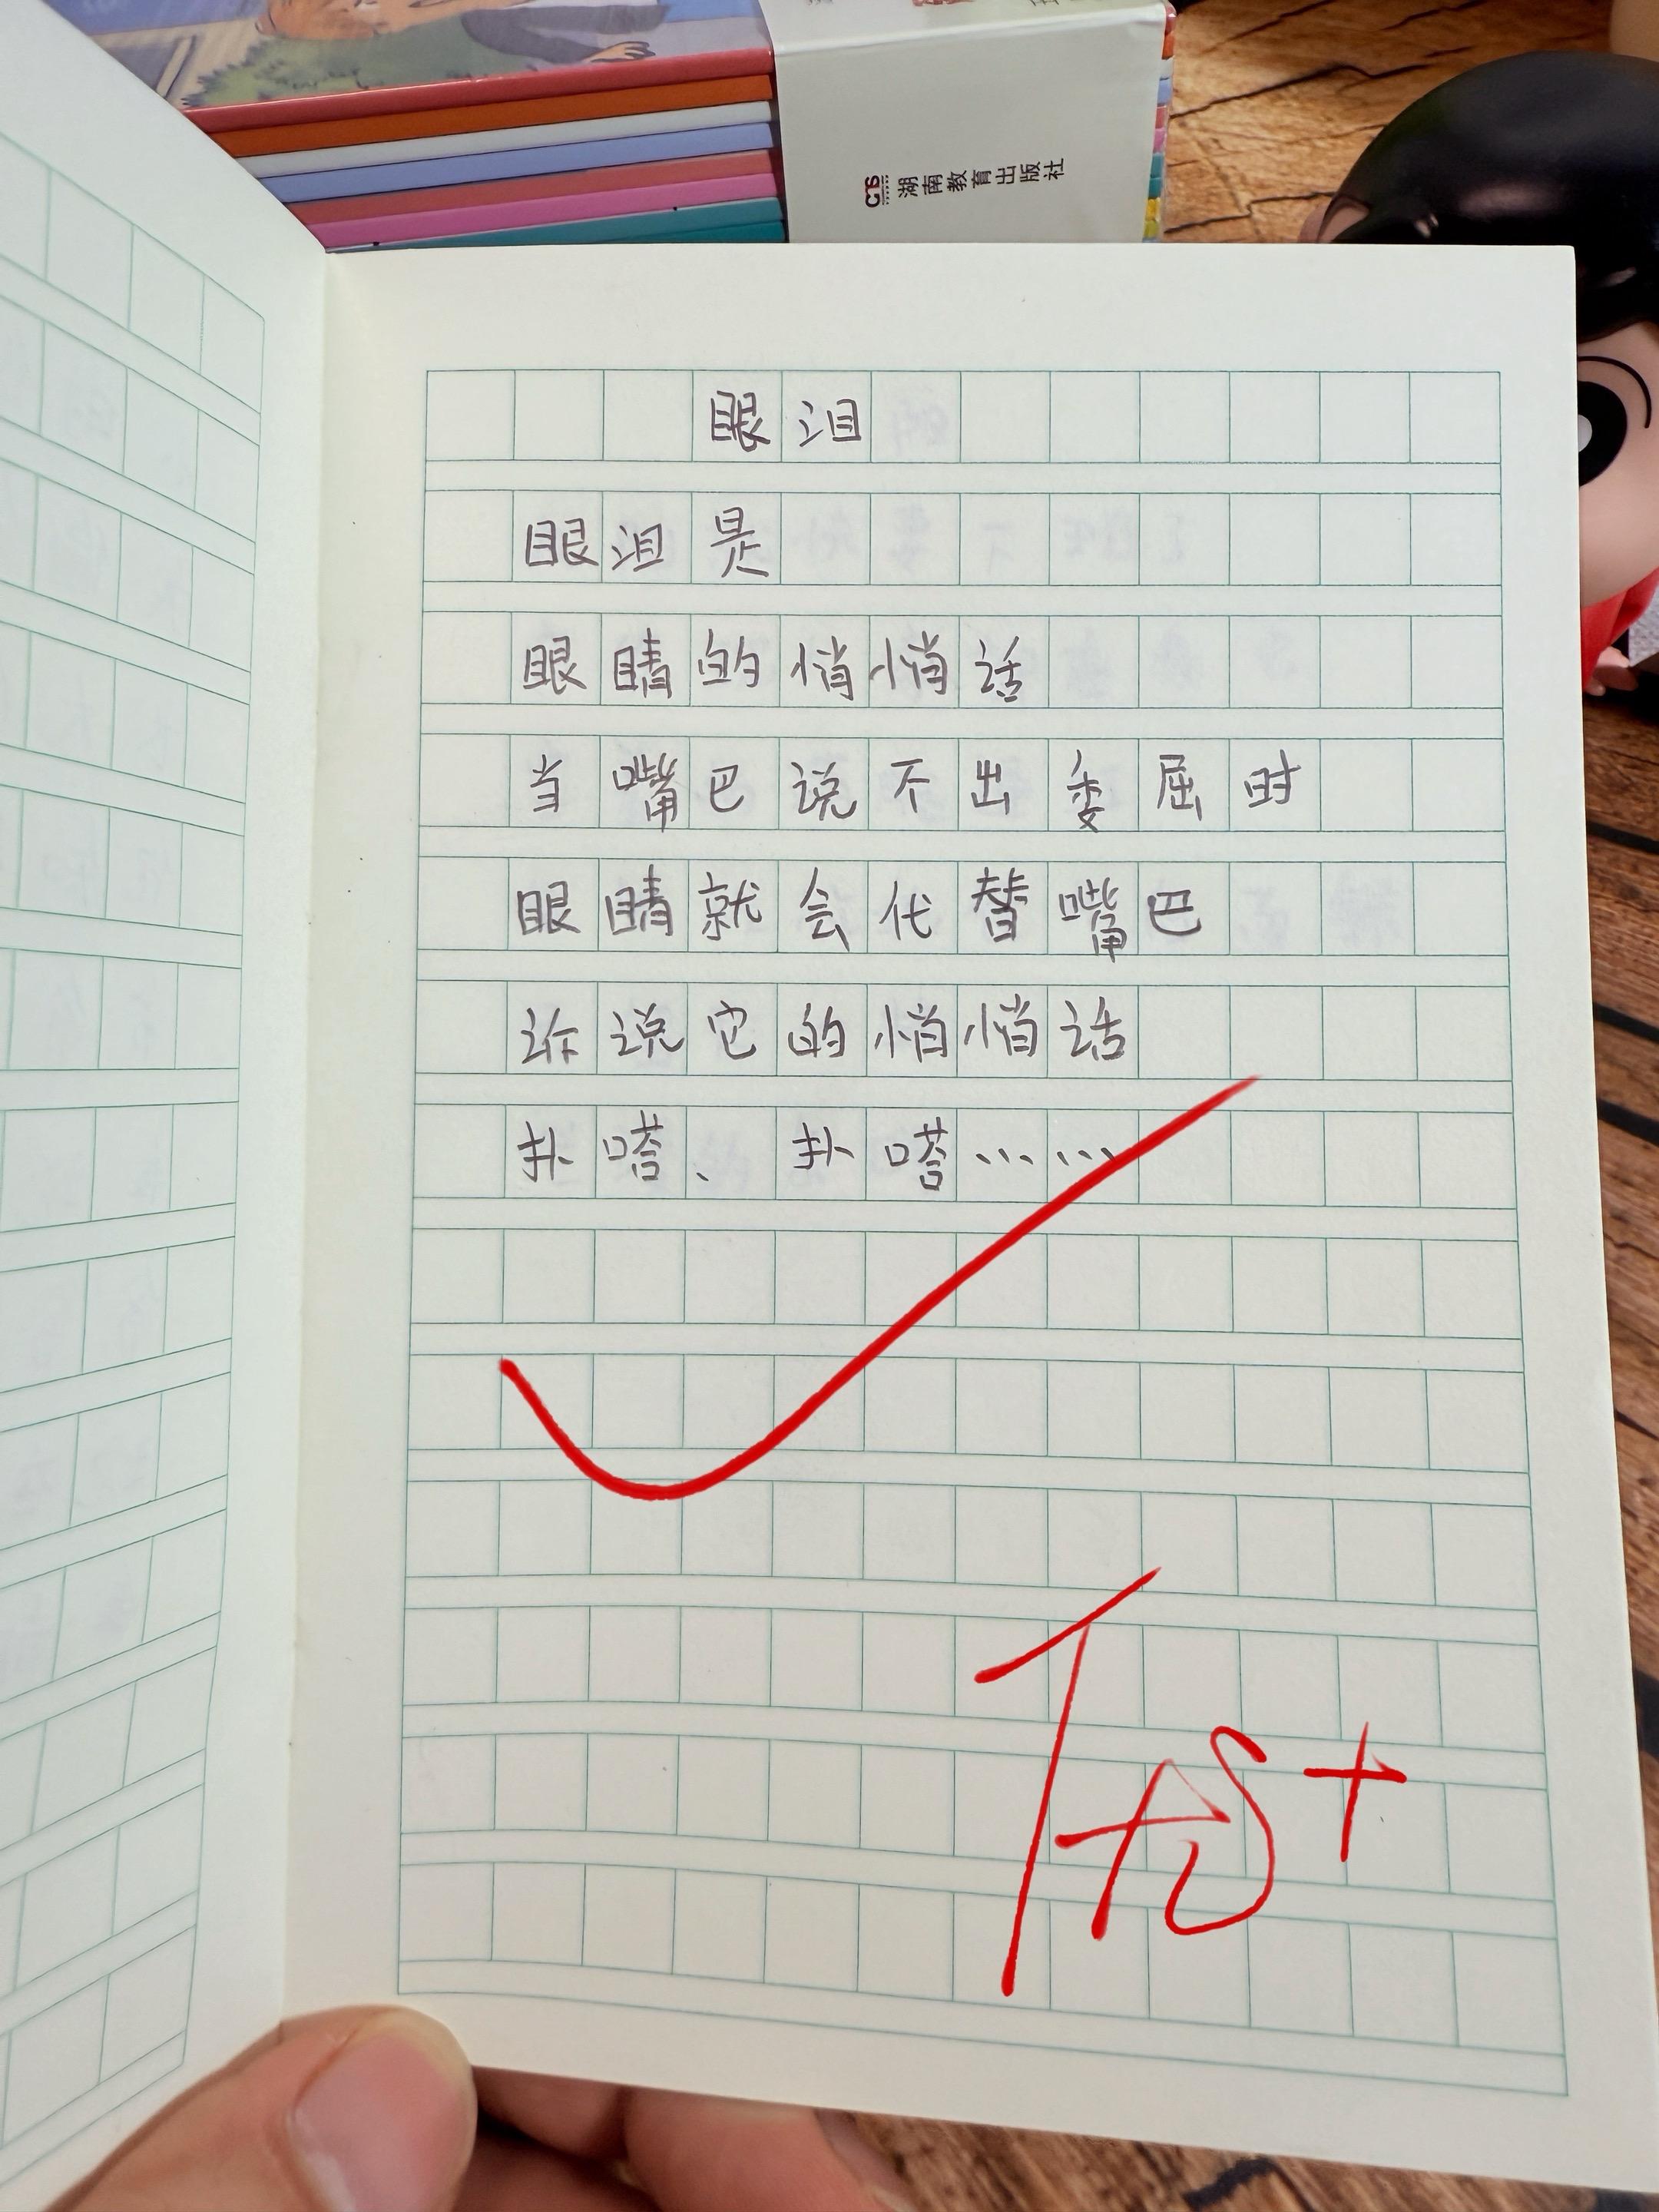 CNS 湖南教育出版社
眼泪
眼泪是
眼睛的悄悄话
当嘴巴说不出委屈时
眼睛就会代替嘴巴
诉说它的悄悄话
扑嗒、扑嗒……
优+